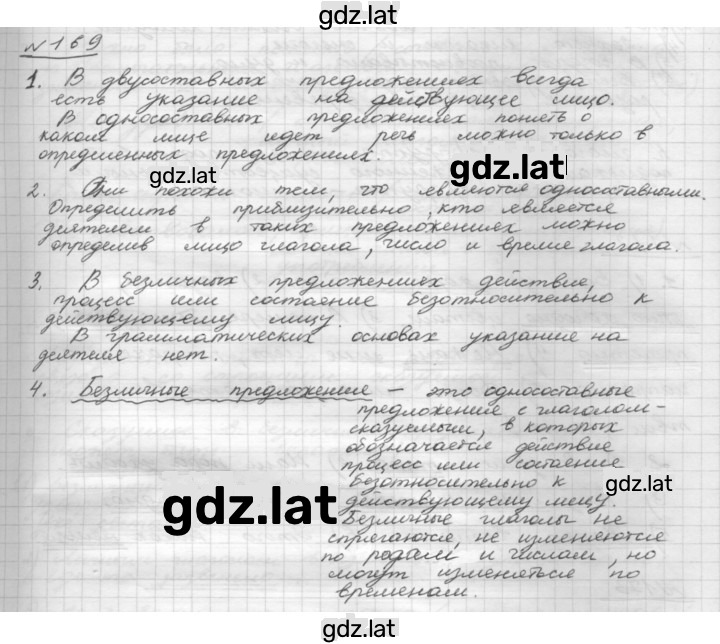 gdz.lat
№ 169
1. В двусоставных предложениях всегда
есть указание на действующее лицо.
В односоставных предложениях понять о
каком лице идет речь можно только в
определенных предложениях.
gdz.lat
gdz.lat
2. Они похожи тем, что являются односоставными.
Определить приблизительно, кто является
деятелем в таких предложениях можно
определив лицо глагола, число и время глагола.
3. В безличных предложениях действие,
процесс или состояние безотносительно к
действующему лицу.
В грамматических основах указания на
деятеля нет.
4. Безличные предложения – это односоставные
предложение с глаголом-
сказуемыми, в которых
обозначается действие
процесс или состаение
безотносительно к
gdz.lat
действующему лицу.
gdz.lat
Безличные глаголы не
спрягаются, не изменяются
по родам и числам, но
могут изменяться по
временам.
gdz.lat